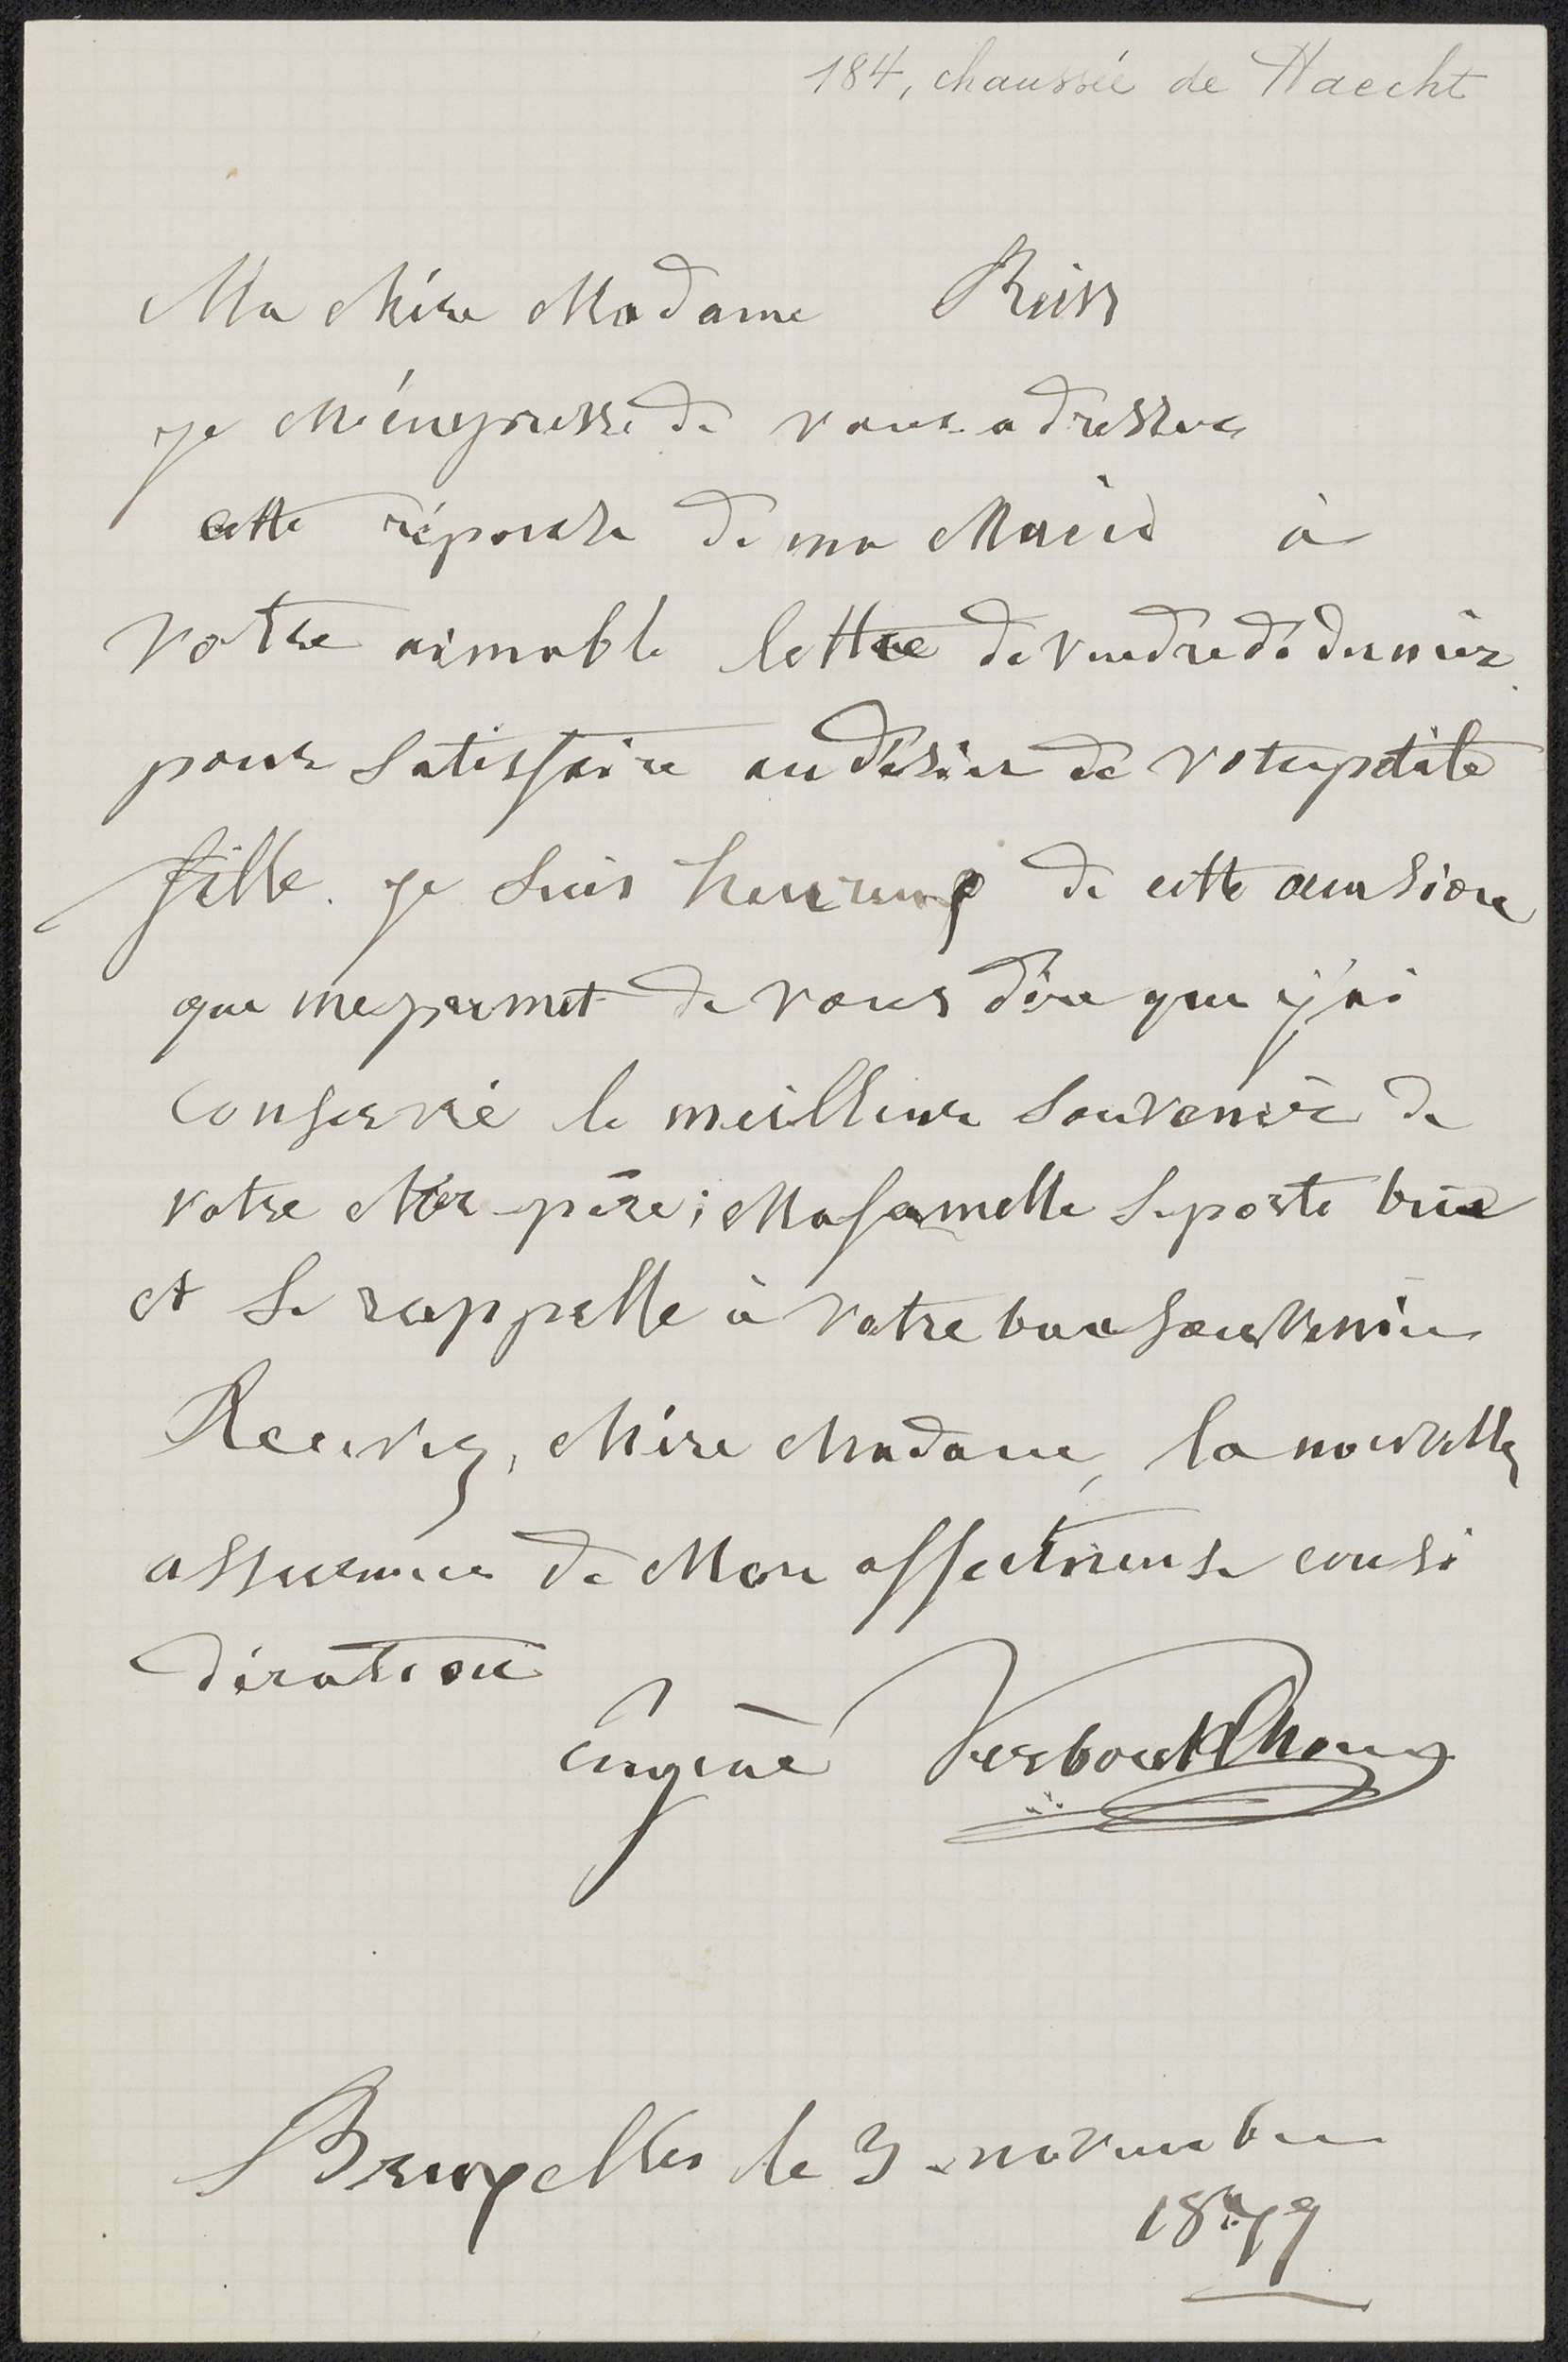 184, chaussée de Haecht
Ma chère Madame Reiss
je m'empresse de vous adresser
cette réponse de ma Main à
votre aimable lettre de vendredi dernier
pour satisfaire au désir de votre petite
fille. je suis heureux de cette occasion
que me permet de vous dire que j'ai
conservé le meilleur souvenir de
votre cher père; Ma famelle se porte bien
et se rappelle à votre bon souvenir
Recevez, chère Madame, la nouvelle
assurance de Mon affectueuse consi
dération
Eugène Verboeckhoven
Bruxelles le 3 novembre
1879